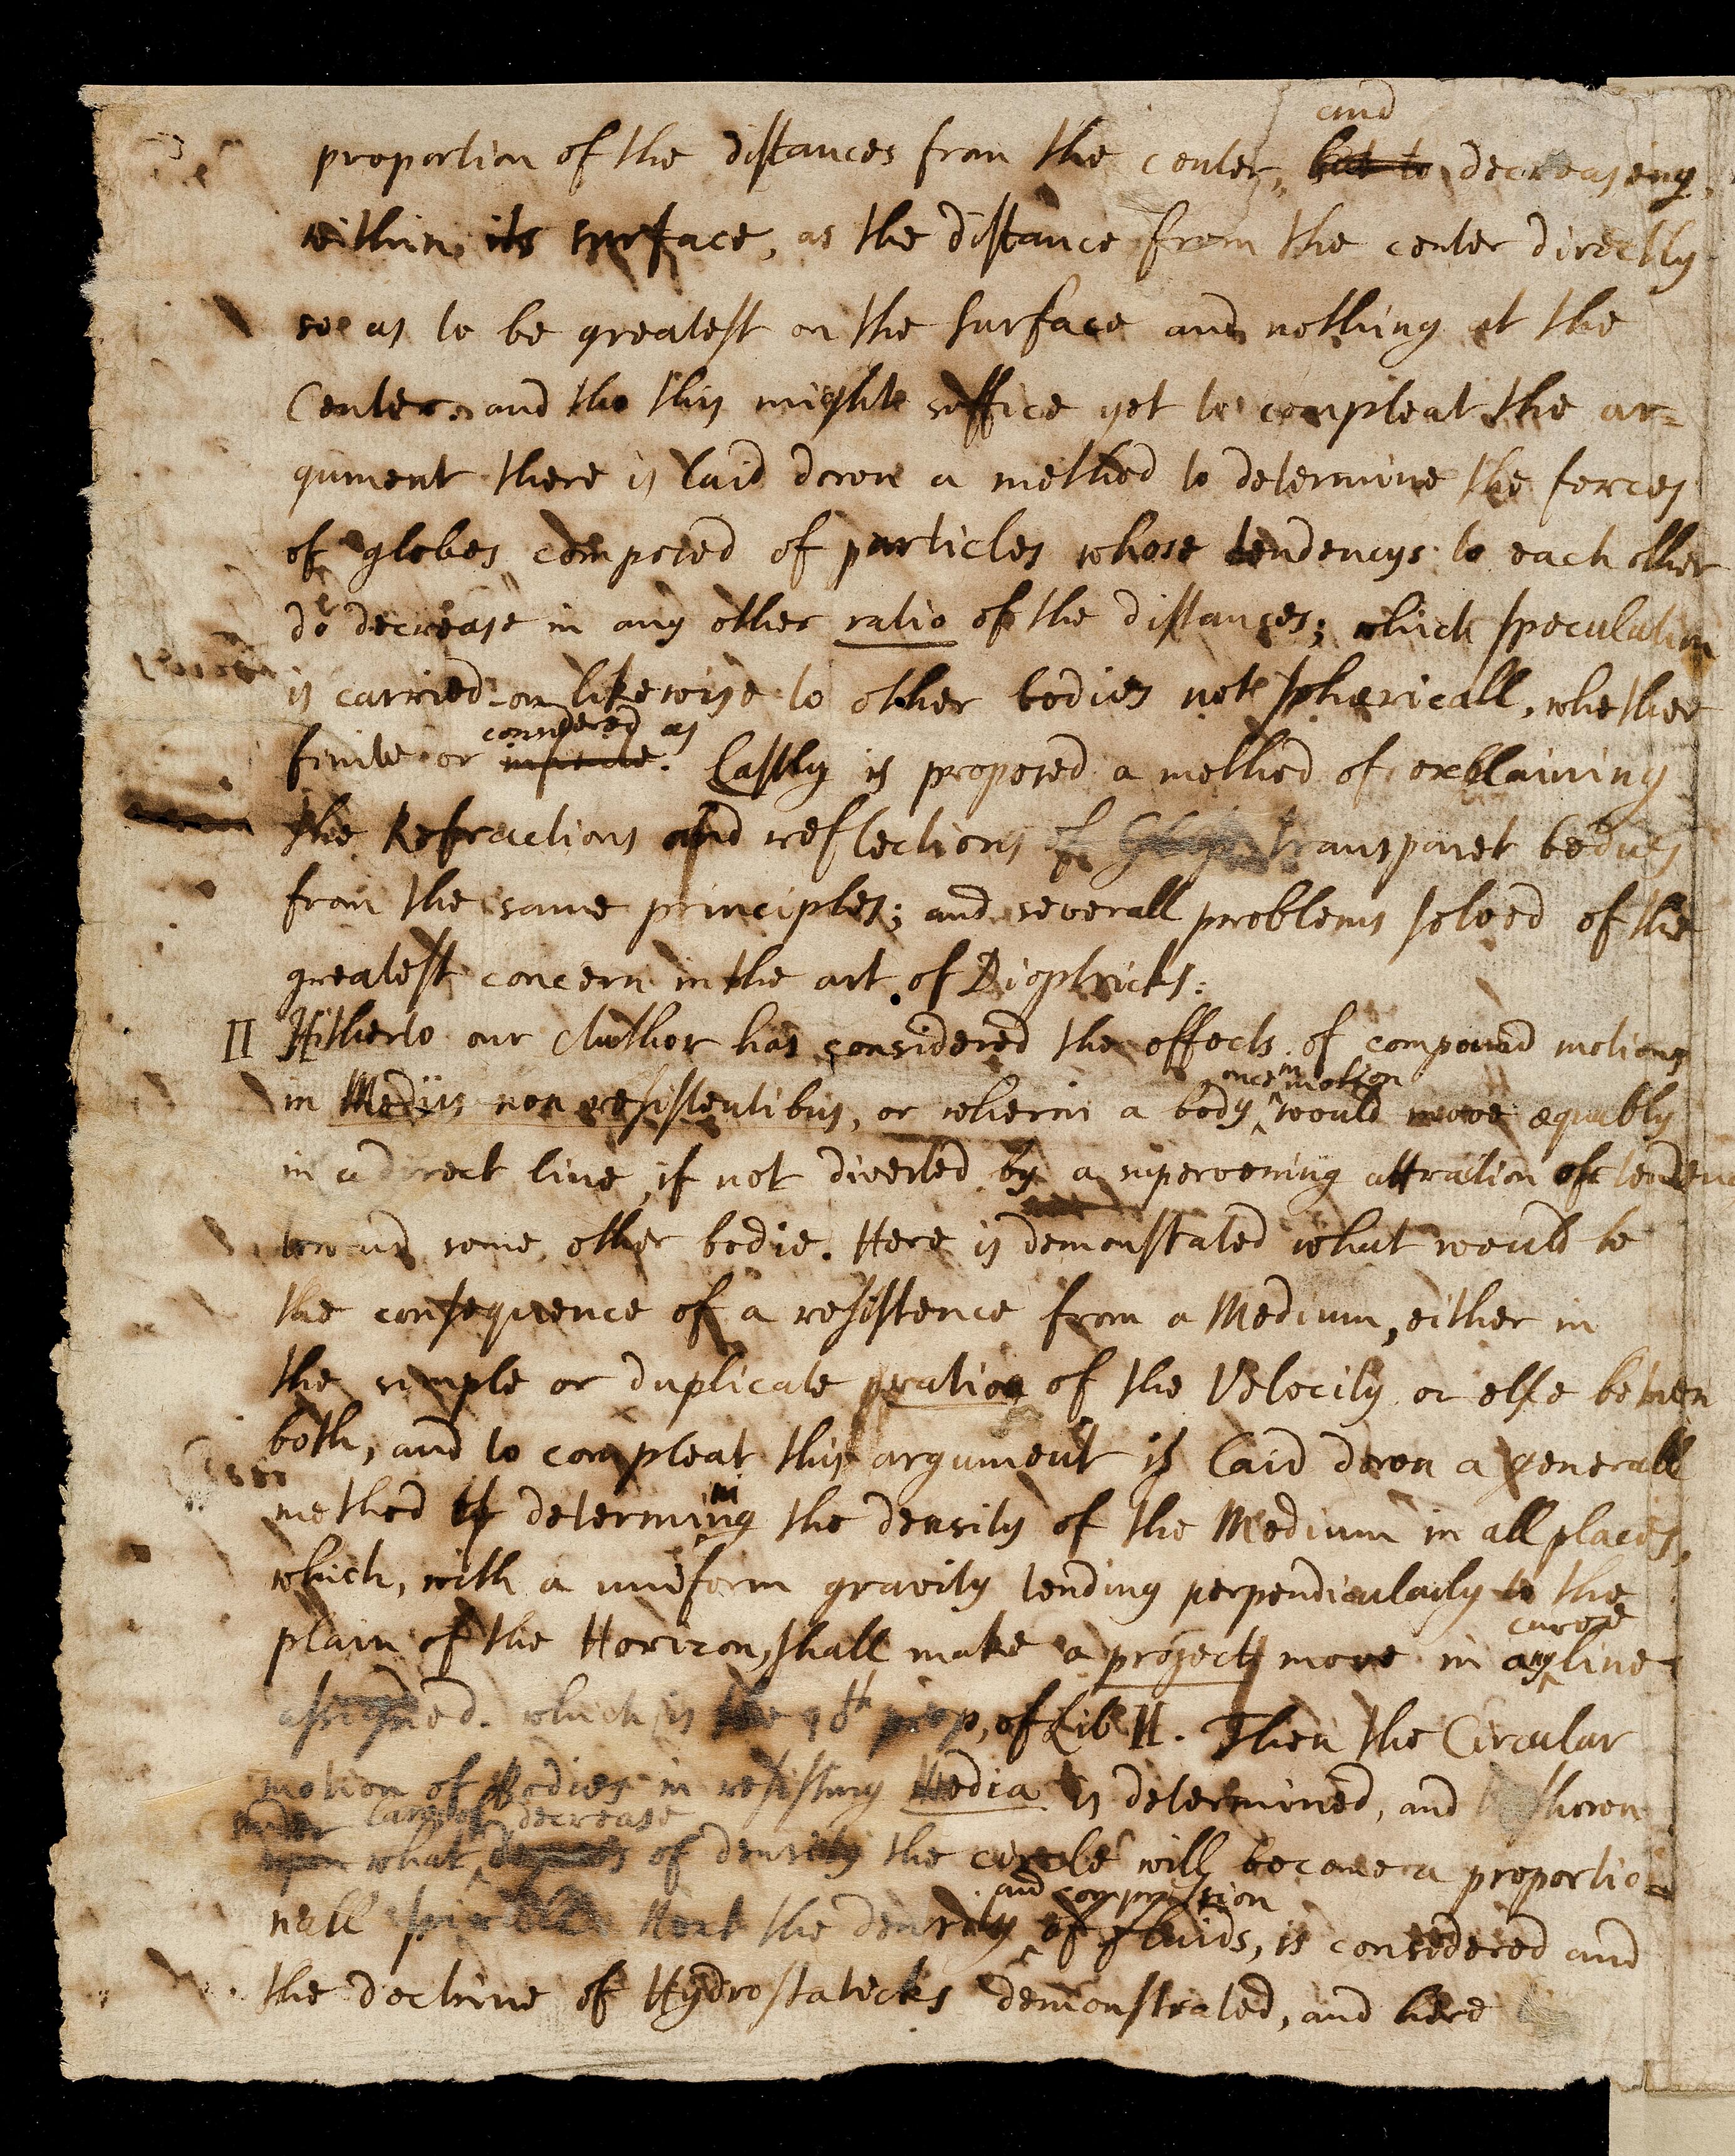 and
proportion of the distances from the center, but to decreaseing
within its surface, as the distance from the center directly
soe as to be greatest on the surface and nothing at the
Center. and tho this might suffice yet to compleat the ar=
gument there is laid down a method to determine the forces
of globes composed of particles whose tendencys to each other
do decrease in any other ratio of the distances; which speculation
is carried on likewise to other bodies not sphæricall, whether
considered as
finite or infinite. Lastly is proposed a method of explaining
the Refractions and reflections of transparet bodies
from the same principles; and severall problems solved of the
greatest concern in the art of Dioptricks.
II Hitherto our Author has considered the effects of compound motions
once in motion
in Mediis non resistentibus, or wherin a body would move equably
in a direct line, if not diverted by a superveening attraction or tendenc
toward some other bodie. Here is demonstated what would be
the consequence of a resistence from a Medium, either in
the simple or duplicate ratio of the Velocity or else betwen
both, and to compleat this argument is laid down a generall
method of determining the density of the Medium in all places,
which, with a uniform gravity tending perpendicularly to the
curve
plain of the Horizon, shall make a project move in any line
assigned. which is the prop, of Lib II. Then the Circular
motion of Bodies in resisting Media is determined, and thown
under laws of decrease
upon what of density the circle will become a proportio=
and compression
nall Next the density of fluids, is considered and
the doctrine of Hydrostaticks demonstrated, and here